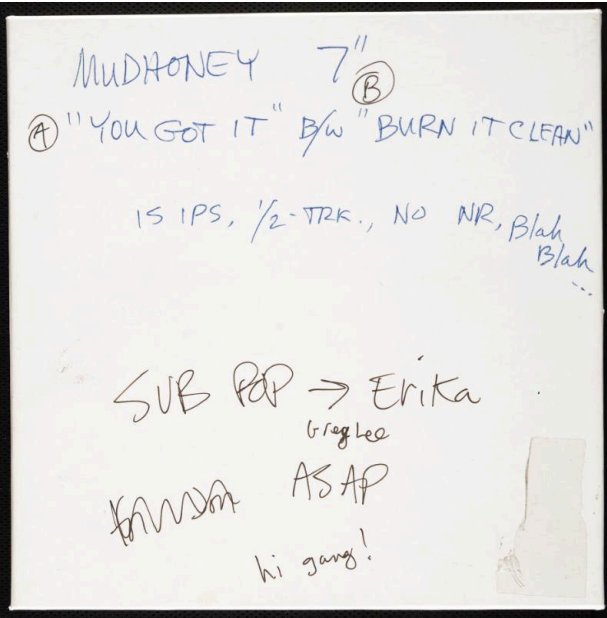 MUDHONEY 7"
Ⓐ "YOU GOT IT" B/W Ⓑ "BURN IT CLEAN"
15 IPS, 1/2-TRK., NO NR, Blah
Blah
...
SUB POP → Erika
Greg Lee
ASAP
hi gang!